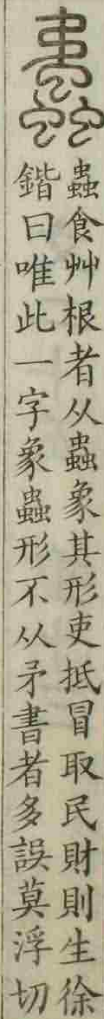 蟲食艸根者从蟲象其形吏抵冒取民財則生徐
鍇曰唯此一字象蟲形不从矛書者多誤莫浮切